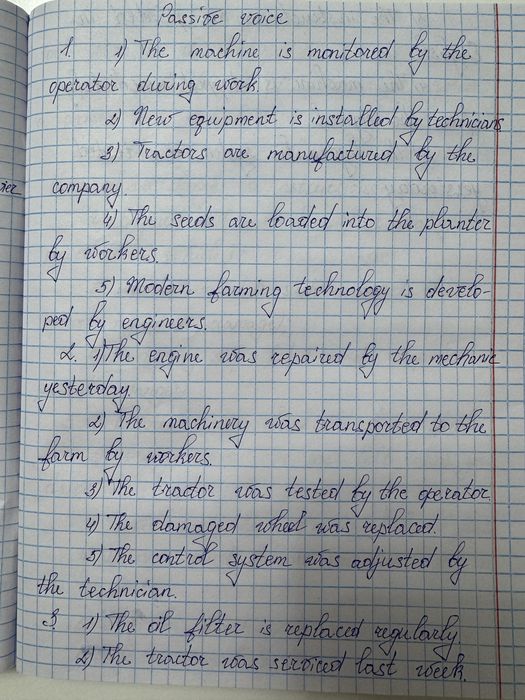 Passive voice
1. 1) The machine is monitored by the
operator during work.
2) New equipment is installed by technicians
3) Tractors are manufactured by the
company.
4) The seeds are loaded into the planter
by workers.
5) Modern farming technology is develo-
ped by engineers.
2. 1) The engine was repaired by the mechanic
yesterday.
2) The machinery was transported to the
farm by workers.
3) The tractor was tested by the operator
4) The damaged wheel was replaced.
5) The control system was adjusted by
the technician.
3. 1) The oil filter is replaced regularly.
2) The tractor was serviced last week.